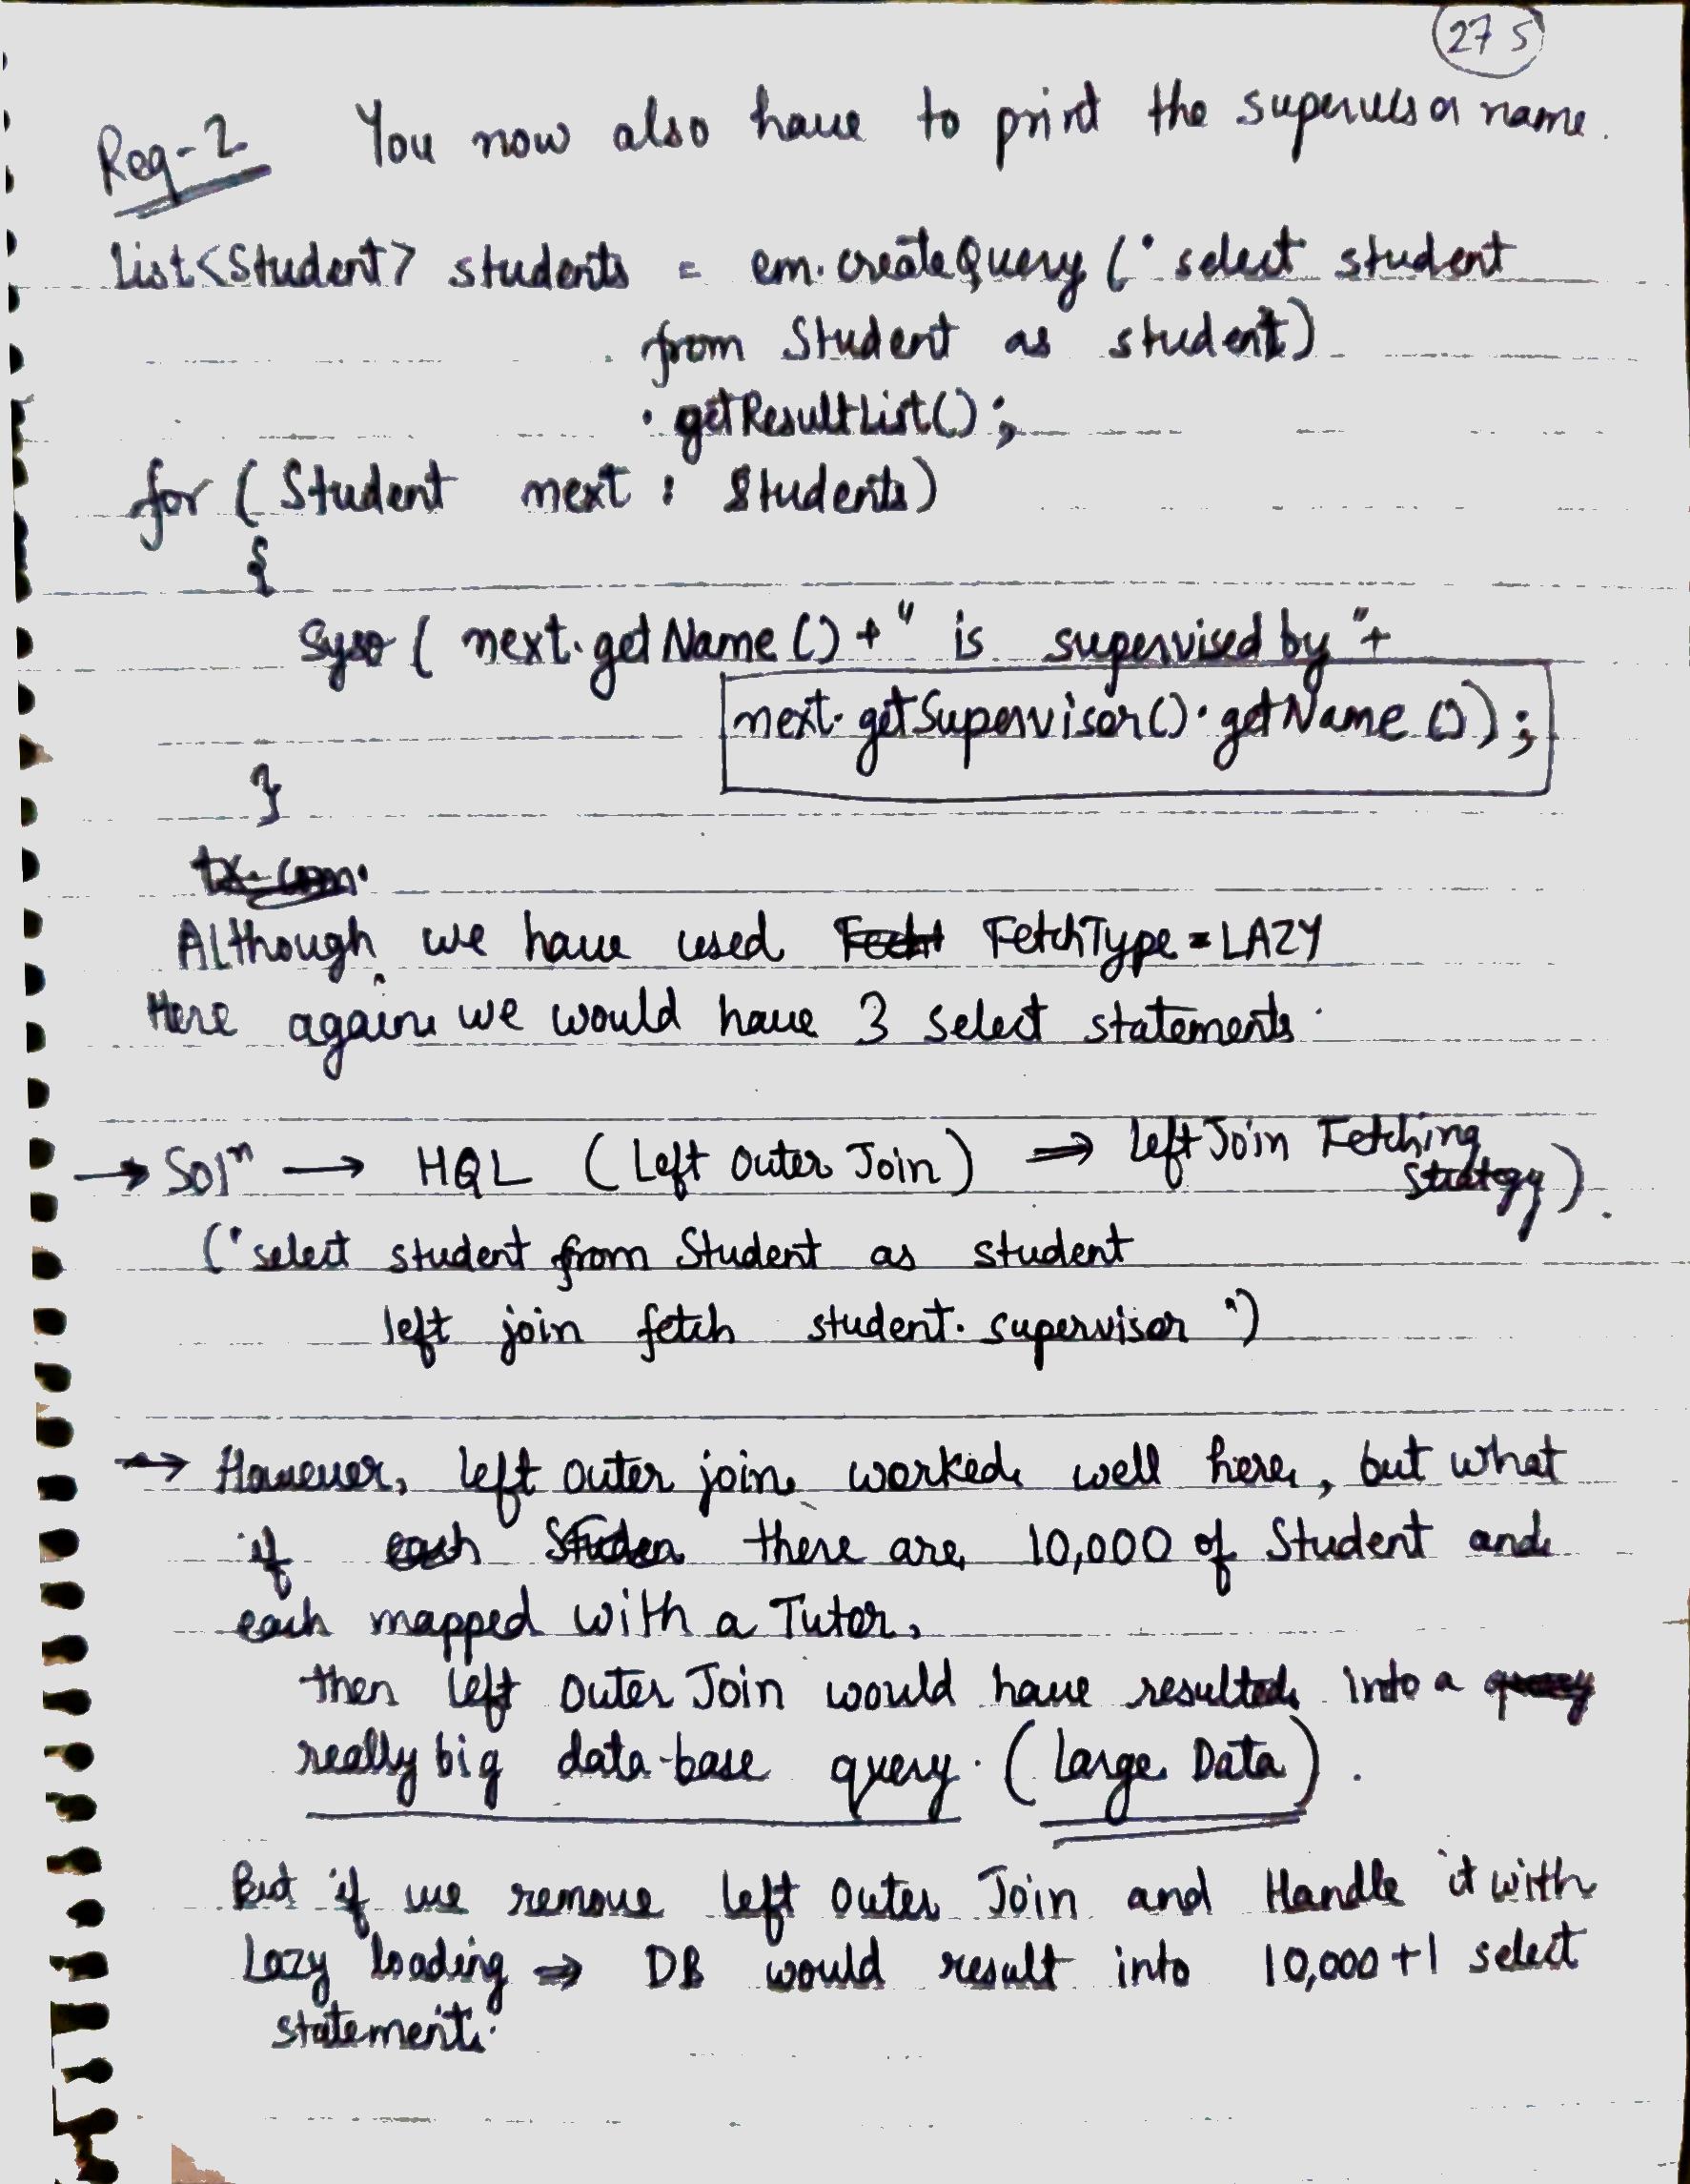 275
Req-2 You now also have to print the supervisor name.
List<Student> students = em.createQuery ("select student
from Student as student)
.getResultList();
for ( Student next : Students)
{
Syso ( next.getName () + " is supervised by "+
next.getSupervisor().getName ());
}
tx.com.
Although we have used FetchType = LAZY
Here again we would have 3 select statements.
→ Solⁿ → HQL (Left Outer Join) ⇒ Left Join Fetching
Strategy).
("select student from Student as student
left join fetch student.supervisor")
→ However, left outer join worked well here, but what
if each Studen there are 10,000 of Student and
each mapped with a Tutor,
then Left Outer Join would have resulted into a query
really big data-base query. (Large Data).
But if we remove left outer Join and Handle it with
Lazy loading ⇒ DB would result into 10,000+1 select
statement.